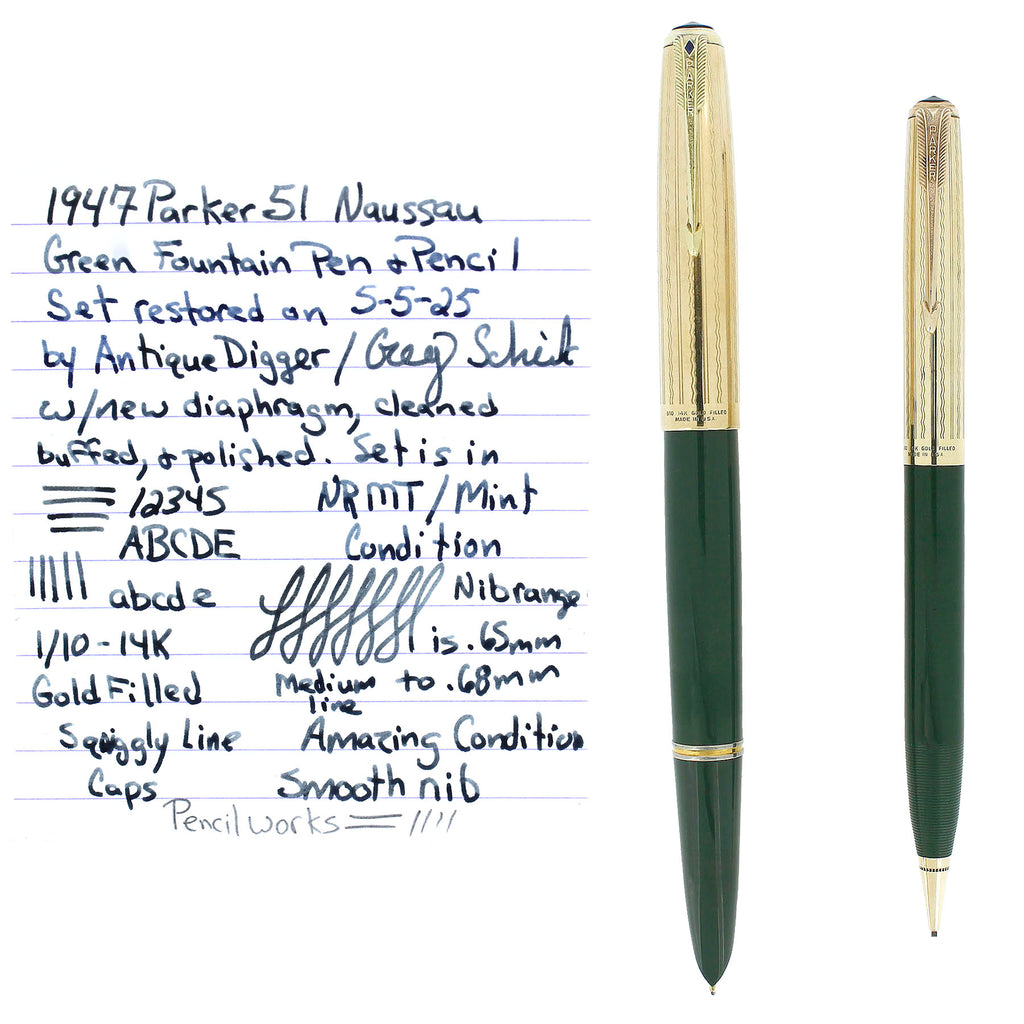 1947 Parker 51 Naussau
Green Fountain Pen & Pencil
Set restored on 5-5-25
by Antique Digger / Greg
w/new diaphragm, cleaned
buffed, & polished. Set is in
12345 NRMT / Mint
ABCDE Condition
abcde Nib range
1/10 - 14K is .65mm
Gold Filled Medium line to .68mm
Squiggly Line Amazing Condition
Caps Smooth nib
Pencil works
PARKER
PARKER
1/10 14K GOLD FILLED
MADE IN U.S.A.
14K GOLD FILLED
MADE IN U.S.A.